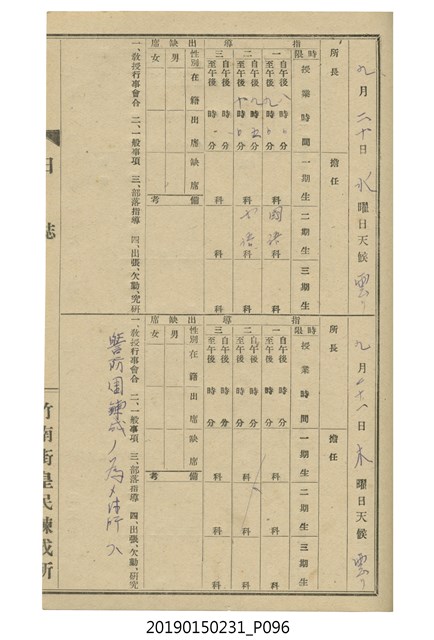 九月二十日水曜日天候雲リ
所長 擔任
指導
時限 授業時間 一期生 二期生 三期生
一 自午後 至午後 時 分 科 國語 科 科
二 自午後 至午後 時 分 科 科 科
三 自午後 至午後 時 分 科 科 科
出缺席
性別 在籍 出席 缺席 備考
男
女
一、教授行事會合 二、一般事項 三、部落指導 四、出張、欠勤、究研
日誌
九月 日木曜日天候雲リ
所長 擔任
指導
時限 授業時間 一期生 二期生 三期生
一 自午後 至午後 時 分 科 科 科
二 自午後 至午後 時 分 科 科 科
三 自午後 至午後 時 分 科 科 科
出缺席
性別 在籍 出席 缺席 備考
男
女
一、教授行事會合 二、一般事項 三、部落指導 四、出張、欠勤、究研
警防團 ノ為メ
竹南街皇民鍊成所
20190150231_P096